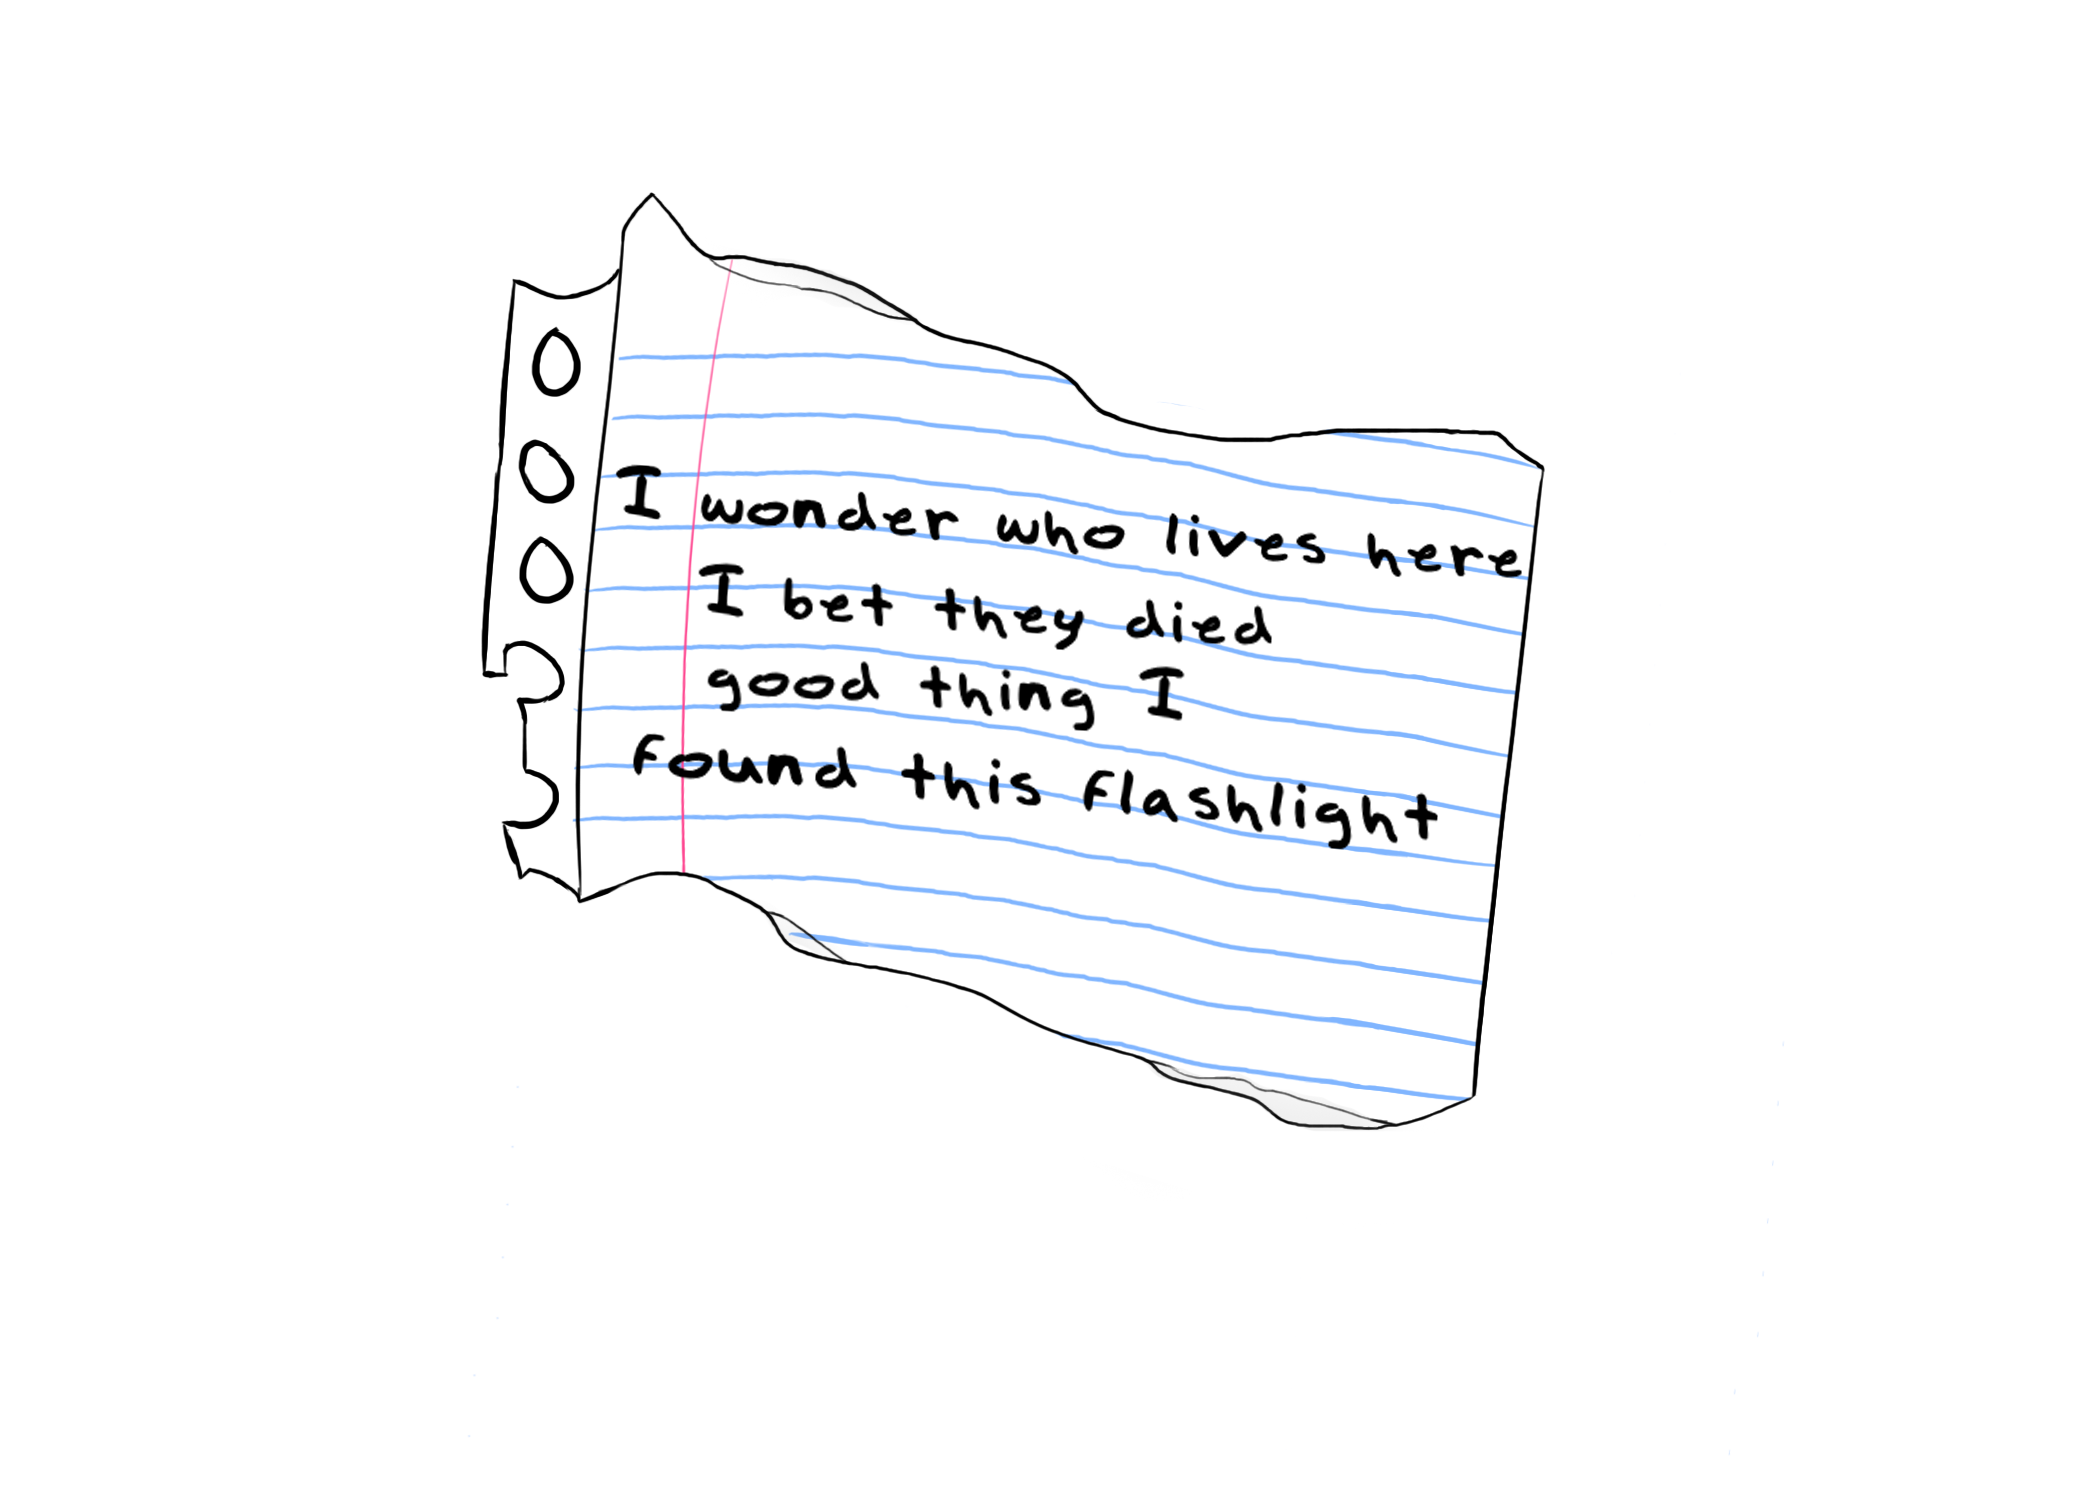 I wonder who lives here
I bet they died
good thing I
found this flashlight